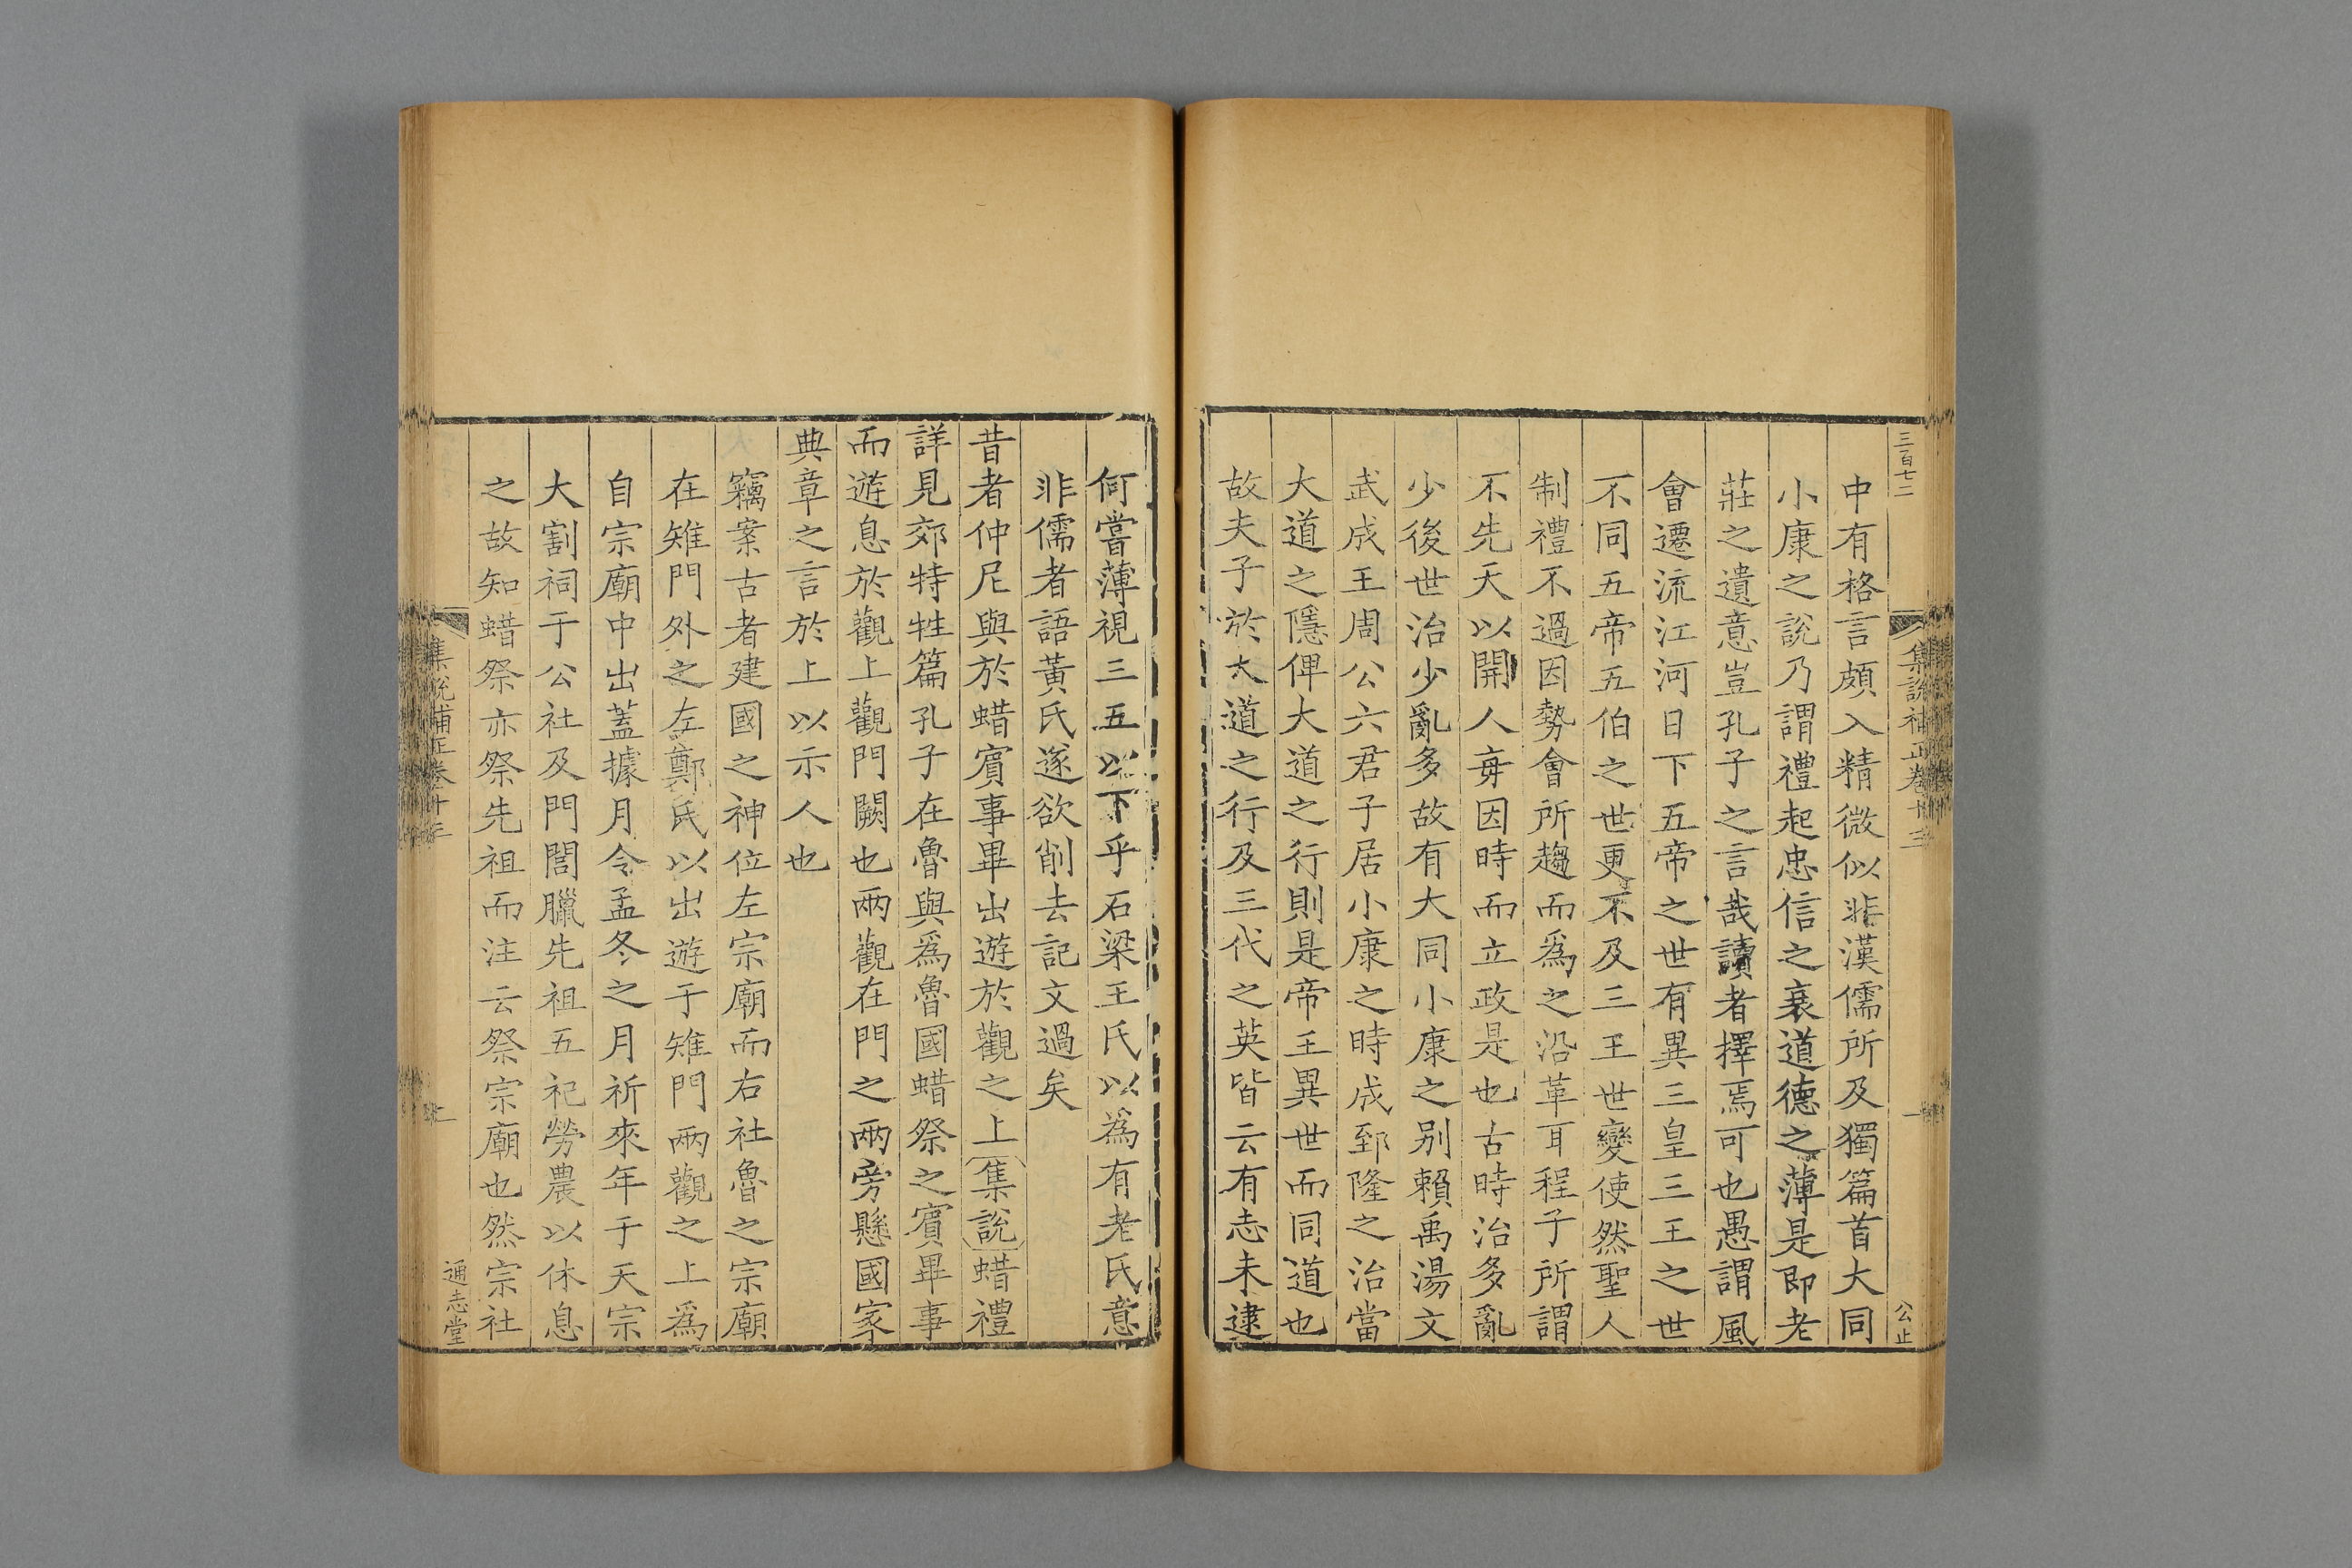 三百七二
集說補正卷十三
一
公止
中有格言頗入精微似非漢儒所及獨篇首大同
小康之說乃謂禮起忠信之衰道德之薄是即老
莊之遺意豈孔子之言哉讀者擇焉可也愚謂風
會遷流江河日下五帝之世有異三皇三王之世
不同五帝五伯之世更不及三王世變使然聖人
制禮不過因勢會所趨而爲之沿革耳程子所謂
不先天以開人毋因時而立政是也古時治多亂
少後世治少亂多故有大同小康之别賴禹湯文
武成王周公六君子居小康之時成郅隆之治當
大道之隱俾大道之行則是帝王異世而同道也
故夫子於大道之行及三代之英皆云有志未逮
何嘗薄視三五以下乎石梁王氏以爲有老氏意
非儒者語黃氏遂欲削去記文過矣
昔者仲尼與於蜡賓事畢出遊於觀之上集說蜡禮
詳見郊特牲篇孔子在魯與爲魯國蜡祭之賓畢事
而遊息於觀上觀門闕也兩觀在門之兩旁懸國家
典章之言於上以示人也
竊案古者建國之神位左宗廟而右社魯之宗廟
在雉門外之左鄭氏以出遊于雉門兩觀之上爲
自宗廟中出蓋據月令孟冬之月祈來年于天宗
大割祠于公社及門閭臘先祖五祀勞農以休息
之故知蜡祭亦祭先祖而注云祭宗廟也然宗社
集說補正卷十三
通志堂